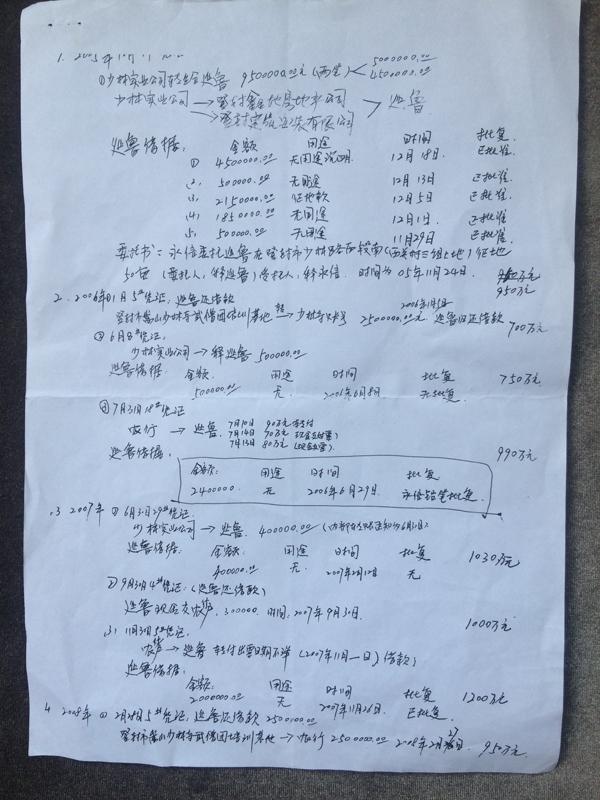 1. 2005年10月
①少林实业公司转账给延鲁 9500000.00元(两笔) < 5000000.00
4500000.00
少林实业公司 → 登封鑫地房地产公司 > 延鲁
→ 登封建筑安装有限公司
延鲁借据: 金额 用途 时间 批复
① 4500000.00 无用途说明 12月18日 已批准
2, 500000.00 无用途 12月13日 已批准
(3) 2150000.00 征地款 12月5日 已批准
(4) 1850000.00 无用途 12月1日 已批准
5, 500000.00 无用途 11月29日 已批准
委托书: 永信委托延鲁在登封市少林路西段南(西关村三组土地)征地
50亩 (委托人, 释延鲁) 受托人, 释永信. 时间为 05年11月24日. 950万元
2. 2006年①1月5#凭证, 延鲁还借款 2006年1月5日
登封市嵩山少林寺武僧团培训基地 转→ 少林寺 2500000.00元 延鲁归还借款 700万元
② 6月8#凭证,
少林实业公司 → 释延鲁 500000.00
延鲁借据: 金额: 用途 时间 批复 750万元
500000.00 无. 2006年6月8日. 无批复.
③ 7月31日18#凭证
农行 → 延鲁. 7月10日 90万元
7月14日 70万元 (现金支票)
7月13日 80万元 (现金支票).
延鲁借据: 990万元
金额: 用途 时间 批复
2400000. 无 2006年6月29日. 永信铅笔批复.
3 2007年 ① 6月3日29#凭证.
少林实业公司 → 延鲁. 400000.00
延鲁借据: 金额: 用途 时间 批复 1030万元
400000.00 无. 2007年2月12日 无
② 9月30日4#凭证: (延鲁还借款)
延鲁现金交农户, 300000. 时间: 2007年9月30日. 1000万元
(3), 11月30日5#凭证.
农户 → 延鲁 转付出票日期不详 (2007年11月一日) (借款)
延鲁借据:
金额: 用途 时间 批复 1200万元
2000000.00 无 2007年11月26日. 已批准.
4. 2008年 ① 2月28日5#凭证, 延鲁还借款 2500000.00
登封市嵩山少林寺武僧团培训基地 → 农行 2500000.00 2008年2月27日. 950万元.